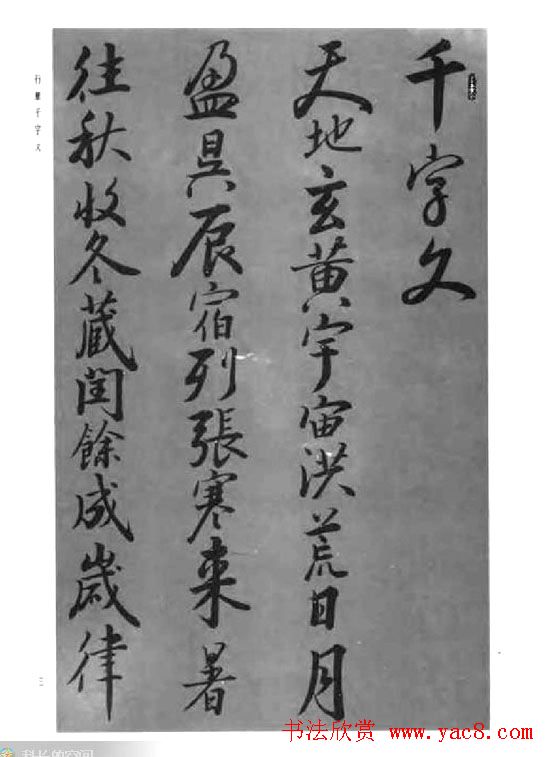 千字文
天地玄黄宇宙洪荒日月
盈昃辰宿列張寒来暑
往秋收冬蔵閏餘成歲律
行書千字文
三
书法欣赏 www.yac8.com
科长的空间